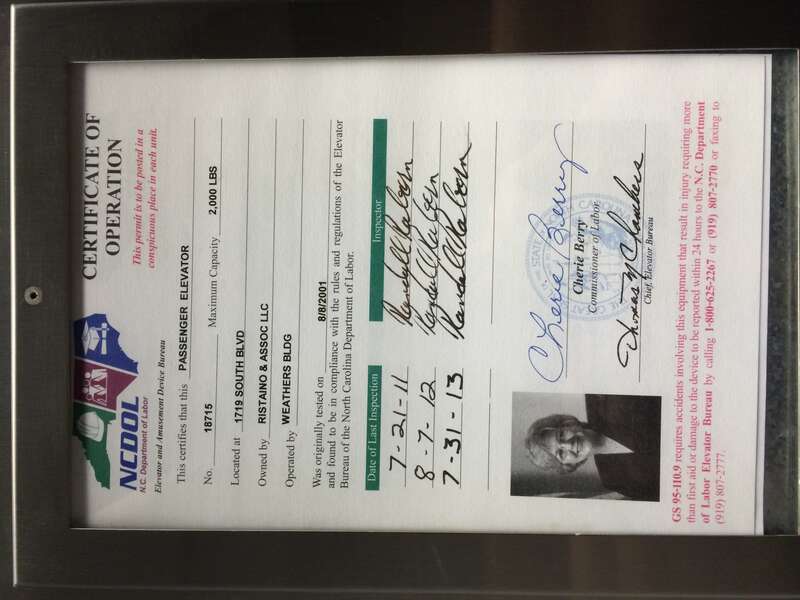 CERTIFICATE OF
OPERATION
This permit is to be posted in a
conspicuous place in each unit.
NCDOL
N.C. Department of Labor
Elevator and Amusement Device Bureau
This certifies that this PASSENGER ELEVATOR
No. 18715 Maximum Capacity 2,000 LBS
Located at 1719 SOUTH BLVD
Owned by RISTAINO & ASSOC LLC
Operated by WEATHERS BLDG
Was originally tested on 8/8/2001
and found to be in compliance with the rules and regulations of the Elevator
Bureau of the North Carolina Department of Labor.
Date of Last Inspection Inspector
7-21-11
8-7-12
7-31-13
Cherie Berry
Cherie Berry
Commissioner of Labor
Thomas M Chambers
Chief, Elevator Bureau
GS 95-110.9 requires accidents involving this equipment that result in injury requiring more
than first aid or damage to the device to be reported within 24 hours to the N.C. Department
of Labor Elevator Bureau by calling 1-800-625-2267 or (919) 807-2770 or faxing to
(919) 807-2777.